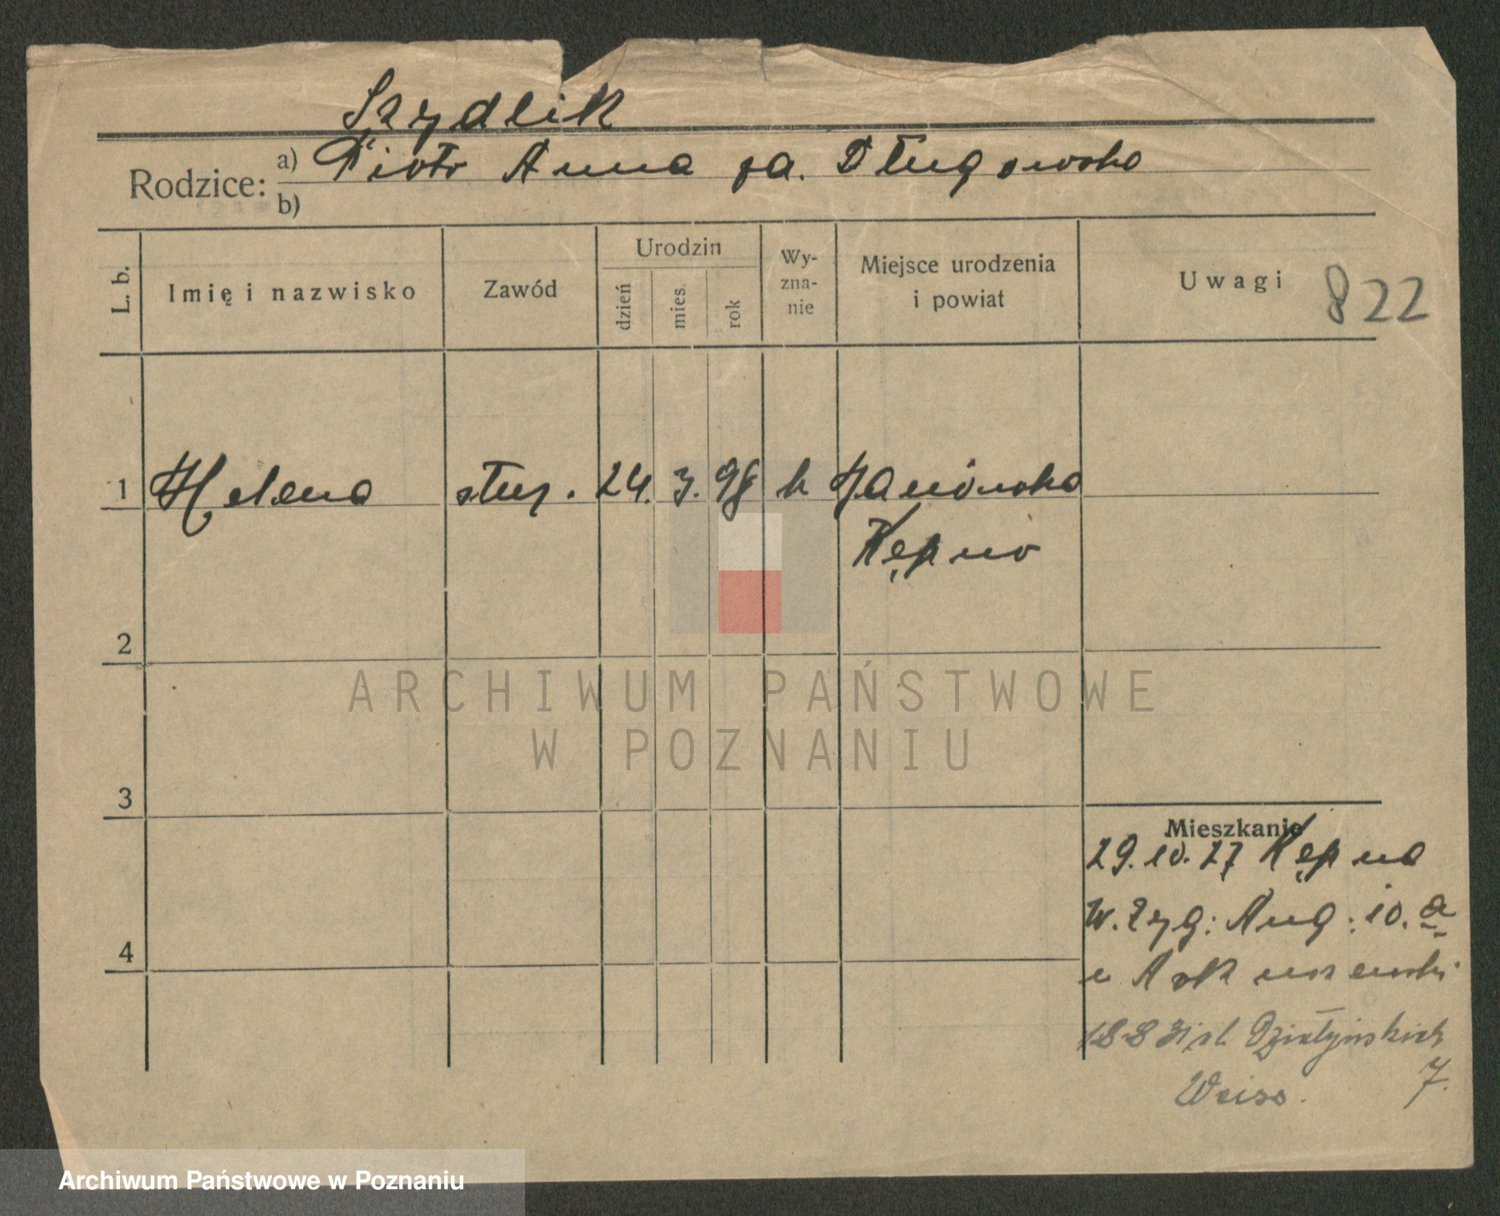 Szydlik
Rodzice: a) Piotr Anna za. Długowska
b)
L. b. Imię i nazwisko Zawód Urodzin dzień mies. rok Wyznanie Miejsce urodzenia i powiat Uwagi 822
1 Helena służ. 24. 3. 98 k Janówka
Kępno
2
ARCHIWUM PAŃSTWOWE
W POZNANIU
3
Mieszkanie
29.10.27 Kępna
W. Zyg: Aug: 10. a
u
4
Działyńskich
Weiss. 7.
Archiwum Państwowe w Poznaniu